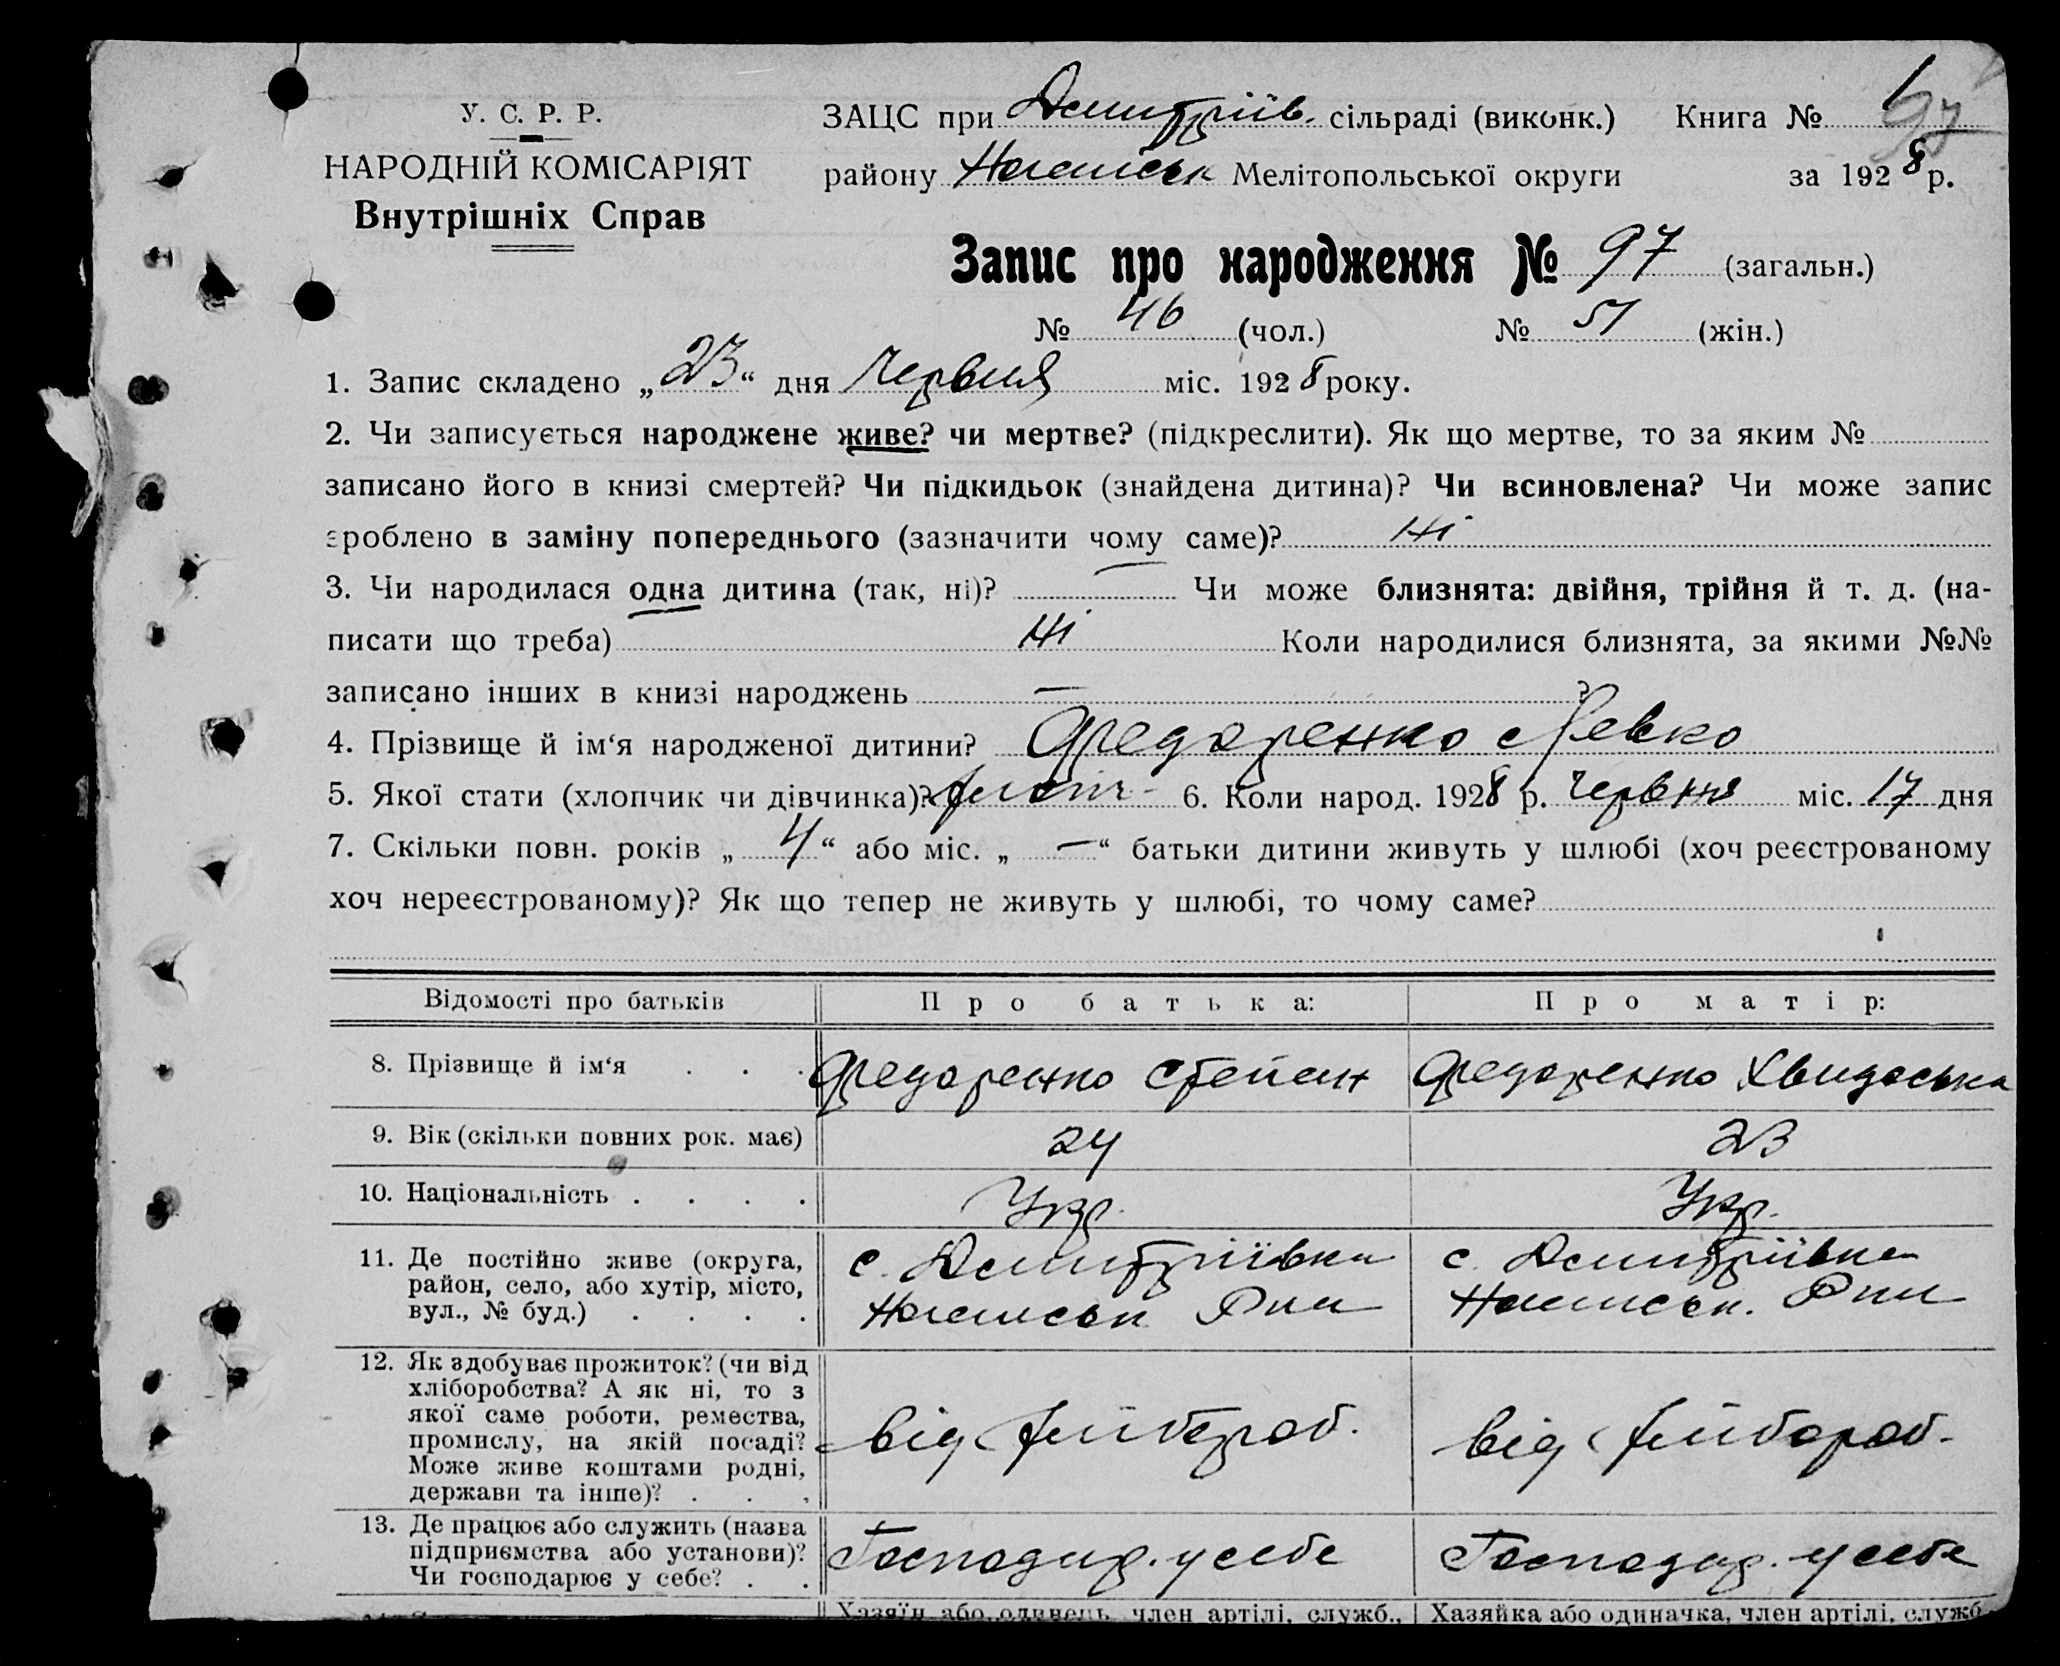 У. С. Р. Р.
НАРОДНІЙ КОМІСАРІЯТ
Внутрішніх Справ
ЗАЦС при Дмитріїв. сільраді (виконк.) Книга № 1
97
району Ногайськ Мелітопольської округи за 1928 р.
Запис про народження № 97 (загальн.)
№ 46 (чол.) № 51 (жін.)
1. Запис складено „23“ дня Червня міс. 1928 року.
2. Чи записується народжене живе? чи мертве? (підкреслити). Як що мертве, то за яким №
записано його в книзі смертей? Чи підкидьок (знайдена дитина)? Чи всиновлена? Чи може запис
зроблено в заміну попереднього (зазначити чому саме)? Ні
3. Чи народилася одна дитина (так, ні)? — Чи може близнята: двійня, трійня й т. д. (на-
писати що треба) Ні Коли народилися близнята, за якими №№
записано інших в книзі народжень — ?
4. Прізвище й ім‘я народженої дитини? Федоренко Левко
5. Якої стати (хлопчик чи дівчинка)? хлопч- 6. Коли народ. 1928 р. Червня міс. 17 дня
7. Скільки повн. років „4“ або міс. „—“ батьки дитини живуть у шлюбі (хоч реєстрованому
хоч нереєстрованому)? Як що тепер не живуть у шлюбі, то чому саме?
Відомості про батьків Про батька: Про матір:
8. Прізвище й ім‘я . . . Федоренко Степан Федоренко Хвидоська
9. Вік (скільки повних рок. має) 24 23
10. Національність . . . . Укр. Укр.
11. Де постійно живе (округа,
район, село, або хутір, місто,
вул., № буд.) . . . .
с. Дмитріївка
Ногайськ Рни
с. Дмитріївка
Ногайськ. Рни
12. Як здобуває прожиток? (чи від
хліборобства? А як ні, то з
якої саме роботи, ремества,
промислу, на якій посаді?
Може живе коштами родні,
держави та інше)? . . .
від хлібороб.
від хлібороб.
13. Де працює або служить (назва
підприємства або установи)?
Чи господарює у себе? . .
Господар. у себе
Господар. у себе
Хазяїн або одинець, член артілі, служб., Хазяйка або одиначка, член артілі, служб